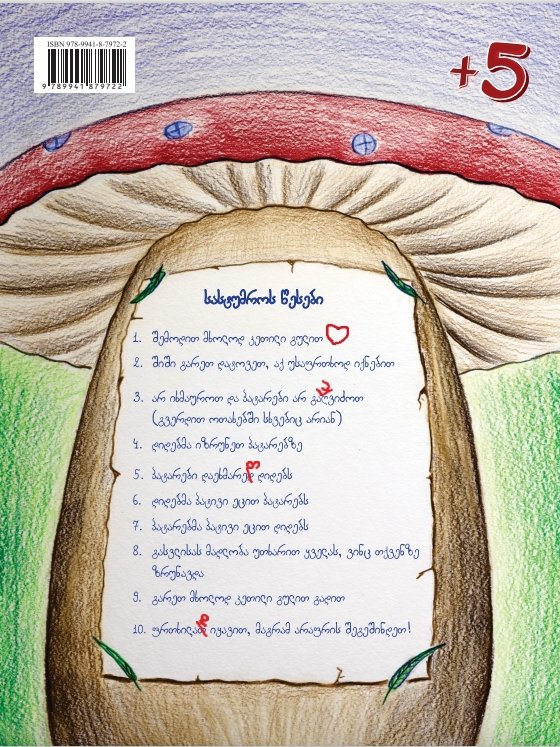 ISBN 978-9941-8-7972-2
9 789941 879722
+5
სასტუმროს წესები
1. შემოდით მხოლოდ კეთილი გულით
2. შიში გარეთ დატოვეთ, აქ უსაფრთხოდ იქნებით
3. არ იხმაუროთ და პატარები არ გააღვიძოთ
(გვერდით ოთახებში სხვებიც არიან)
4. დიდებმა იზრუნეთ პატარებზე
5. პატარები დაეხმარეთ დიდებს
6. დიდებმა პატივი ეცით პატარებს
7. პატარებმა პატივი ეცით დიდებს
8. გასვლისას მადლობა უთხარით ყველას, ვინც თქვენზე
ზრუნავდა
9. გარეთ მხოლოდ კეთილი გულით გადით
10. ფრთხილად იყავით, მაგრამ არაფრის შეგეშინდეთ!